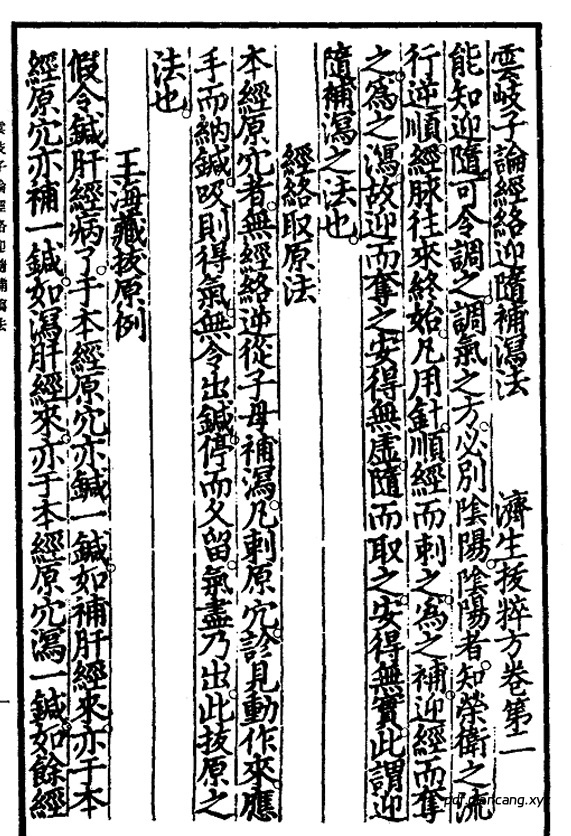 雲岐子論經絡迎隨補瀉法　濟生拔粹方卷第二
能知迎隨可令調之調氣之方必別陰陽陰陽者知榮衛之流
行逆順經脉往來終始凡用針順經而刺之爲之補迎經而奪
之爲之瀉故迎而奪之安得無虛隨而取之安得無實此謂迎
隨補瀉之法也
經絡取原法
本經原穴者無經絡逆從子母補瀉凡刺原穴診見動作來應
手而納鍼吸則得氣無令出鍼停而久留氣盡乃出此拔原之
法也
王海藏拔原例
假令鍼肝經病了于本經原穴亦鍼一鍼如補肝經來亦于本
經原穴亦補一鍼如瀉肝經來亦于本經原穴瀉一鍼如餘經
雲岐子論經絡迎隨補瀉法
一
pdf.qiancang.xyz